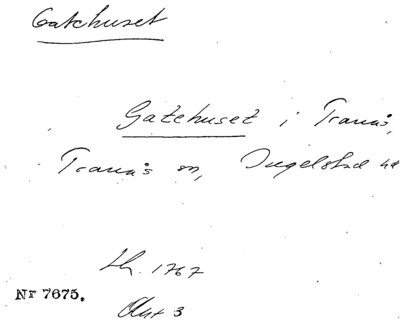 Gatehuset
Gatehuset i Tranås,
Tranås sn, Ingelstad hd
Lh. 1767
Nr 7675.
Akt 3